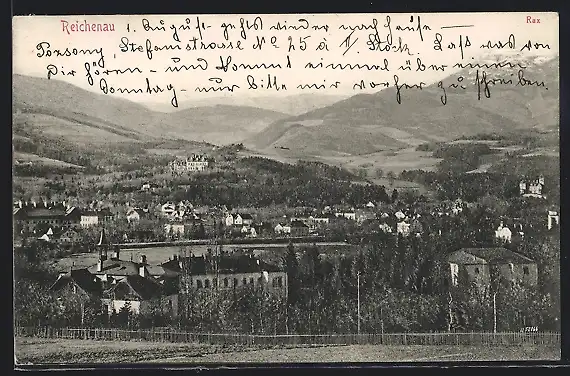 Reichenau
Rax
1. August gehts wieder nach hause —
Pozsony, Stefaniestrasse No 25 a II Stock. Last was von
Dir hören – und kommt einmal über einen
Sonntag – nur bitte mir vorher zu schreiben.